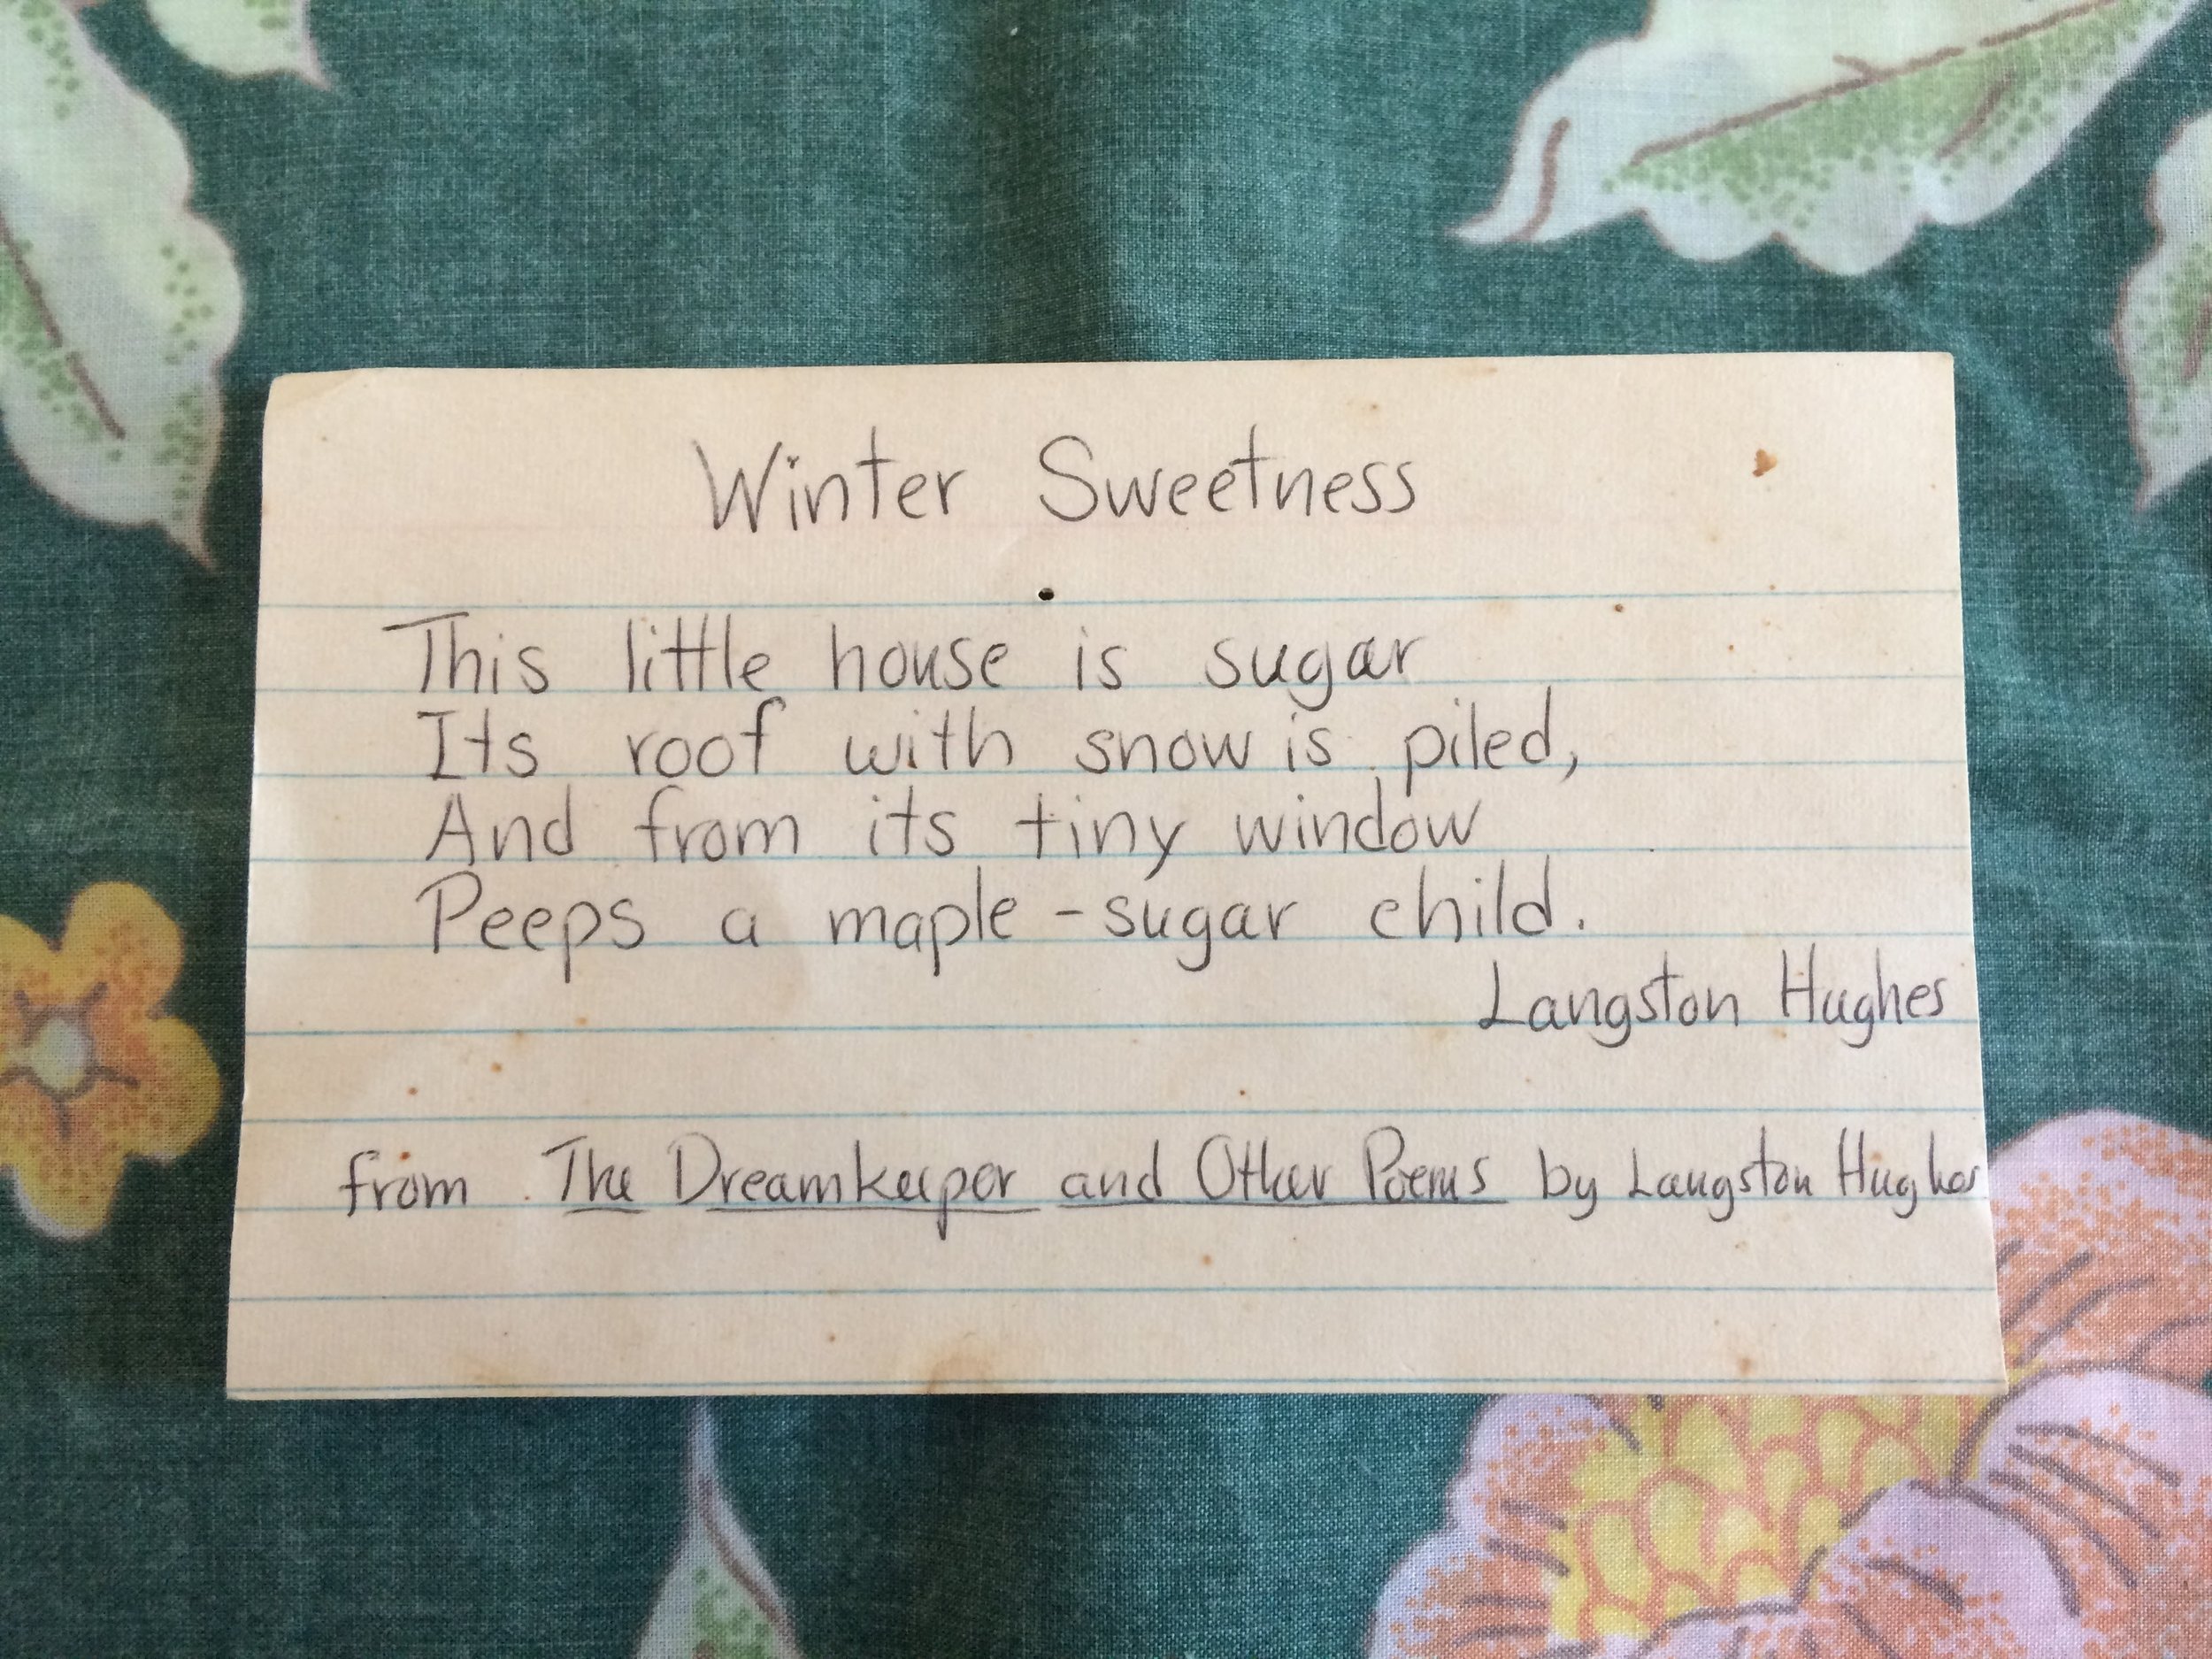 Winter Sweetness
This little house is sugar
Its roof with snow is piled,
And from its tiny window
Peeps a maple-sugar child.
Langston Hughes
from The Dreamkeeper and Other Poems by Langston Hughes